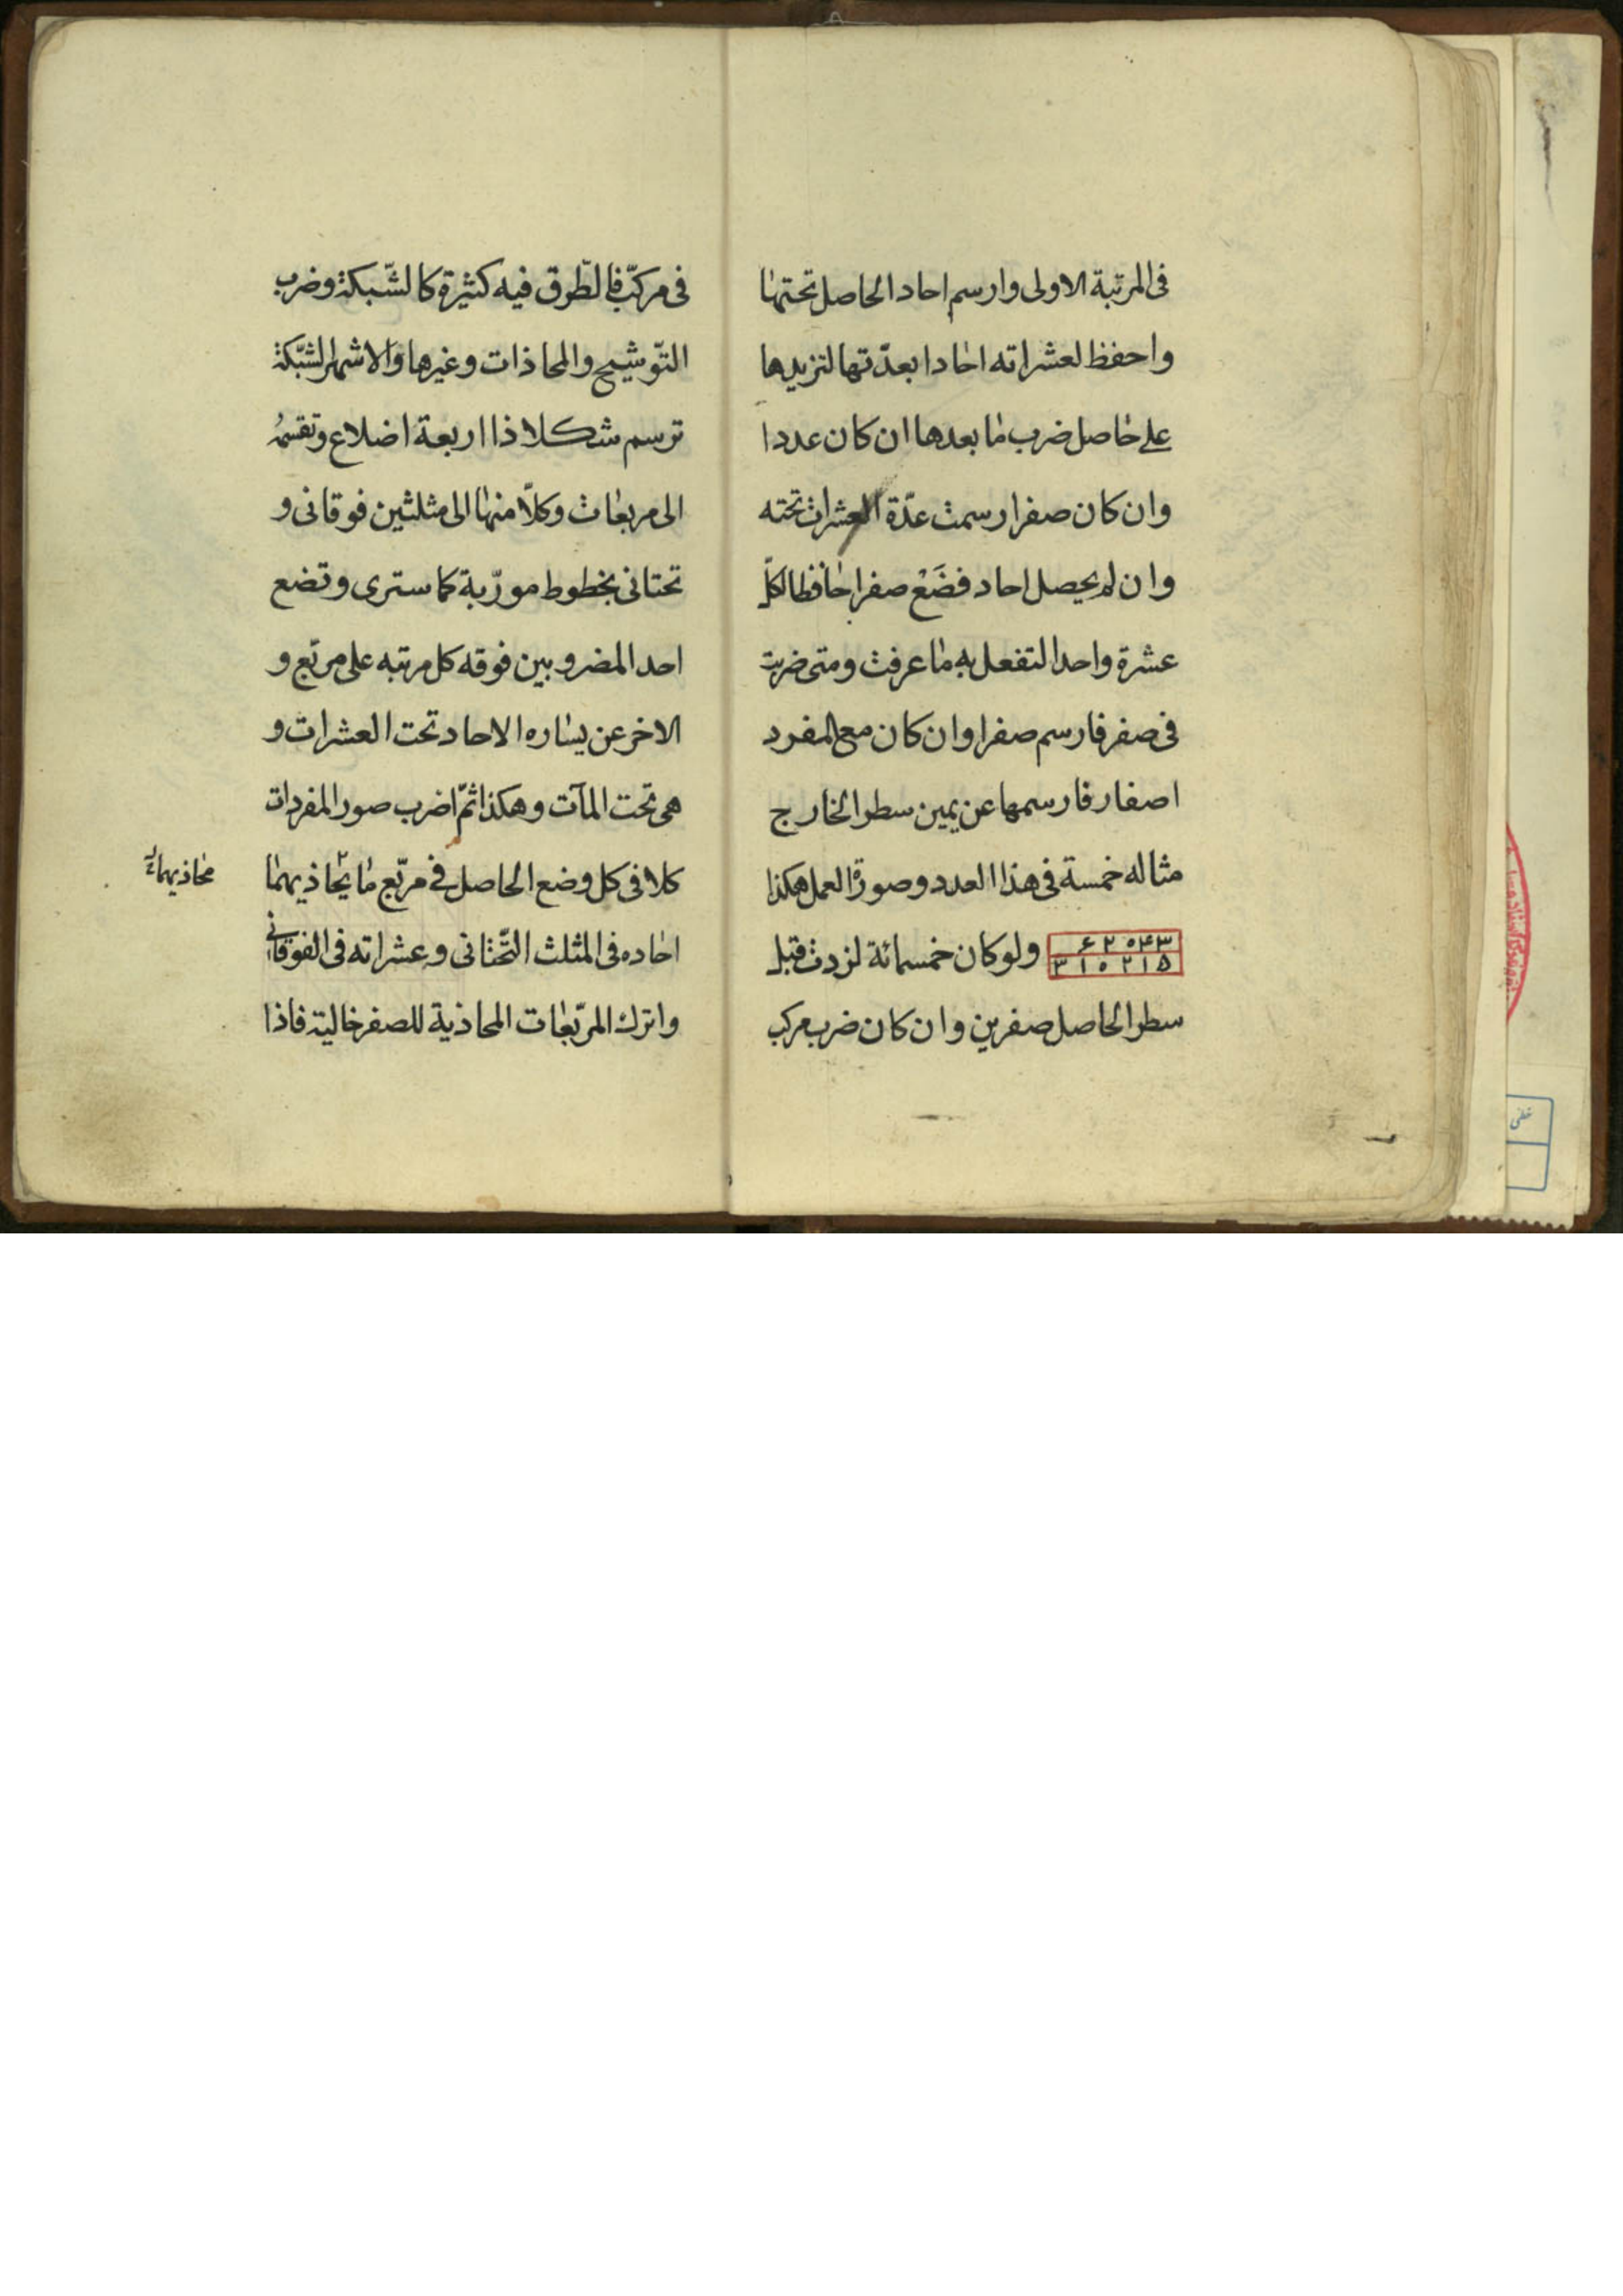 فى المرتبة الاولى وارسم احاد الحاصل تحتها
واحفظ لعشراته احادا بعدّتها لتزيدها
على حاصل ضرب ما بعدها ان كان عددا
وان كان صفرا رسمت عدّة العشرات تحته
وان لم يحصل احاد فضَعْ صفرا حافظا لكلّ
عشرة واحدا لتفعل به ما عرفت ومتى ضربت
فى صفر فارسم صفرا وان كان مع المفرد
اصفار فارسمها عن يمين سطر الخارج
مثاله خمسة فى هذا العدد وصورة العمل هكذا
۶۲۰۴۳
۳۱۰۲۱۵
ولو كان خمسمائة لزدت قبل
سطر الحاصل صفرين وان كان ضرب مركب
فى مركّب فالطّرق فيه كثيرة كالشّبكة وضرب
التّوشيح والمحاذات وغيرها والاشهر الشبّكة
ترسم شكلا ذا اربعة اضلاع وتقسمُه
الى مربعات وكلّا منها الى مثلثين فوقانى و
تحتانى بخطوط مورّبة كما سترى وتضع
احد المضروبين فوقه كل مرتبه على مربّع و
الاخر عن يساره الاحاد تحت العشرات و
هى تحت المآت وهكذا ثمّ اضرب صور المفردات
كلا فى كل وضع الحاصل فى مربّع ما يحاذيهما
محاذيهما
احاده فى المثلث التّحتانى وعشراته فى الفوقانى
واترك المربّعات المحاذية للصفر خالية فاذا